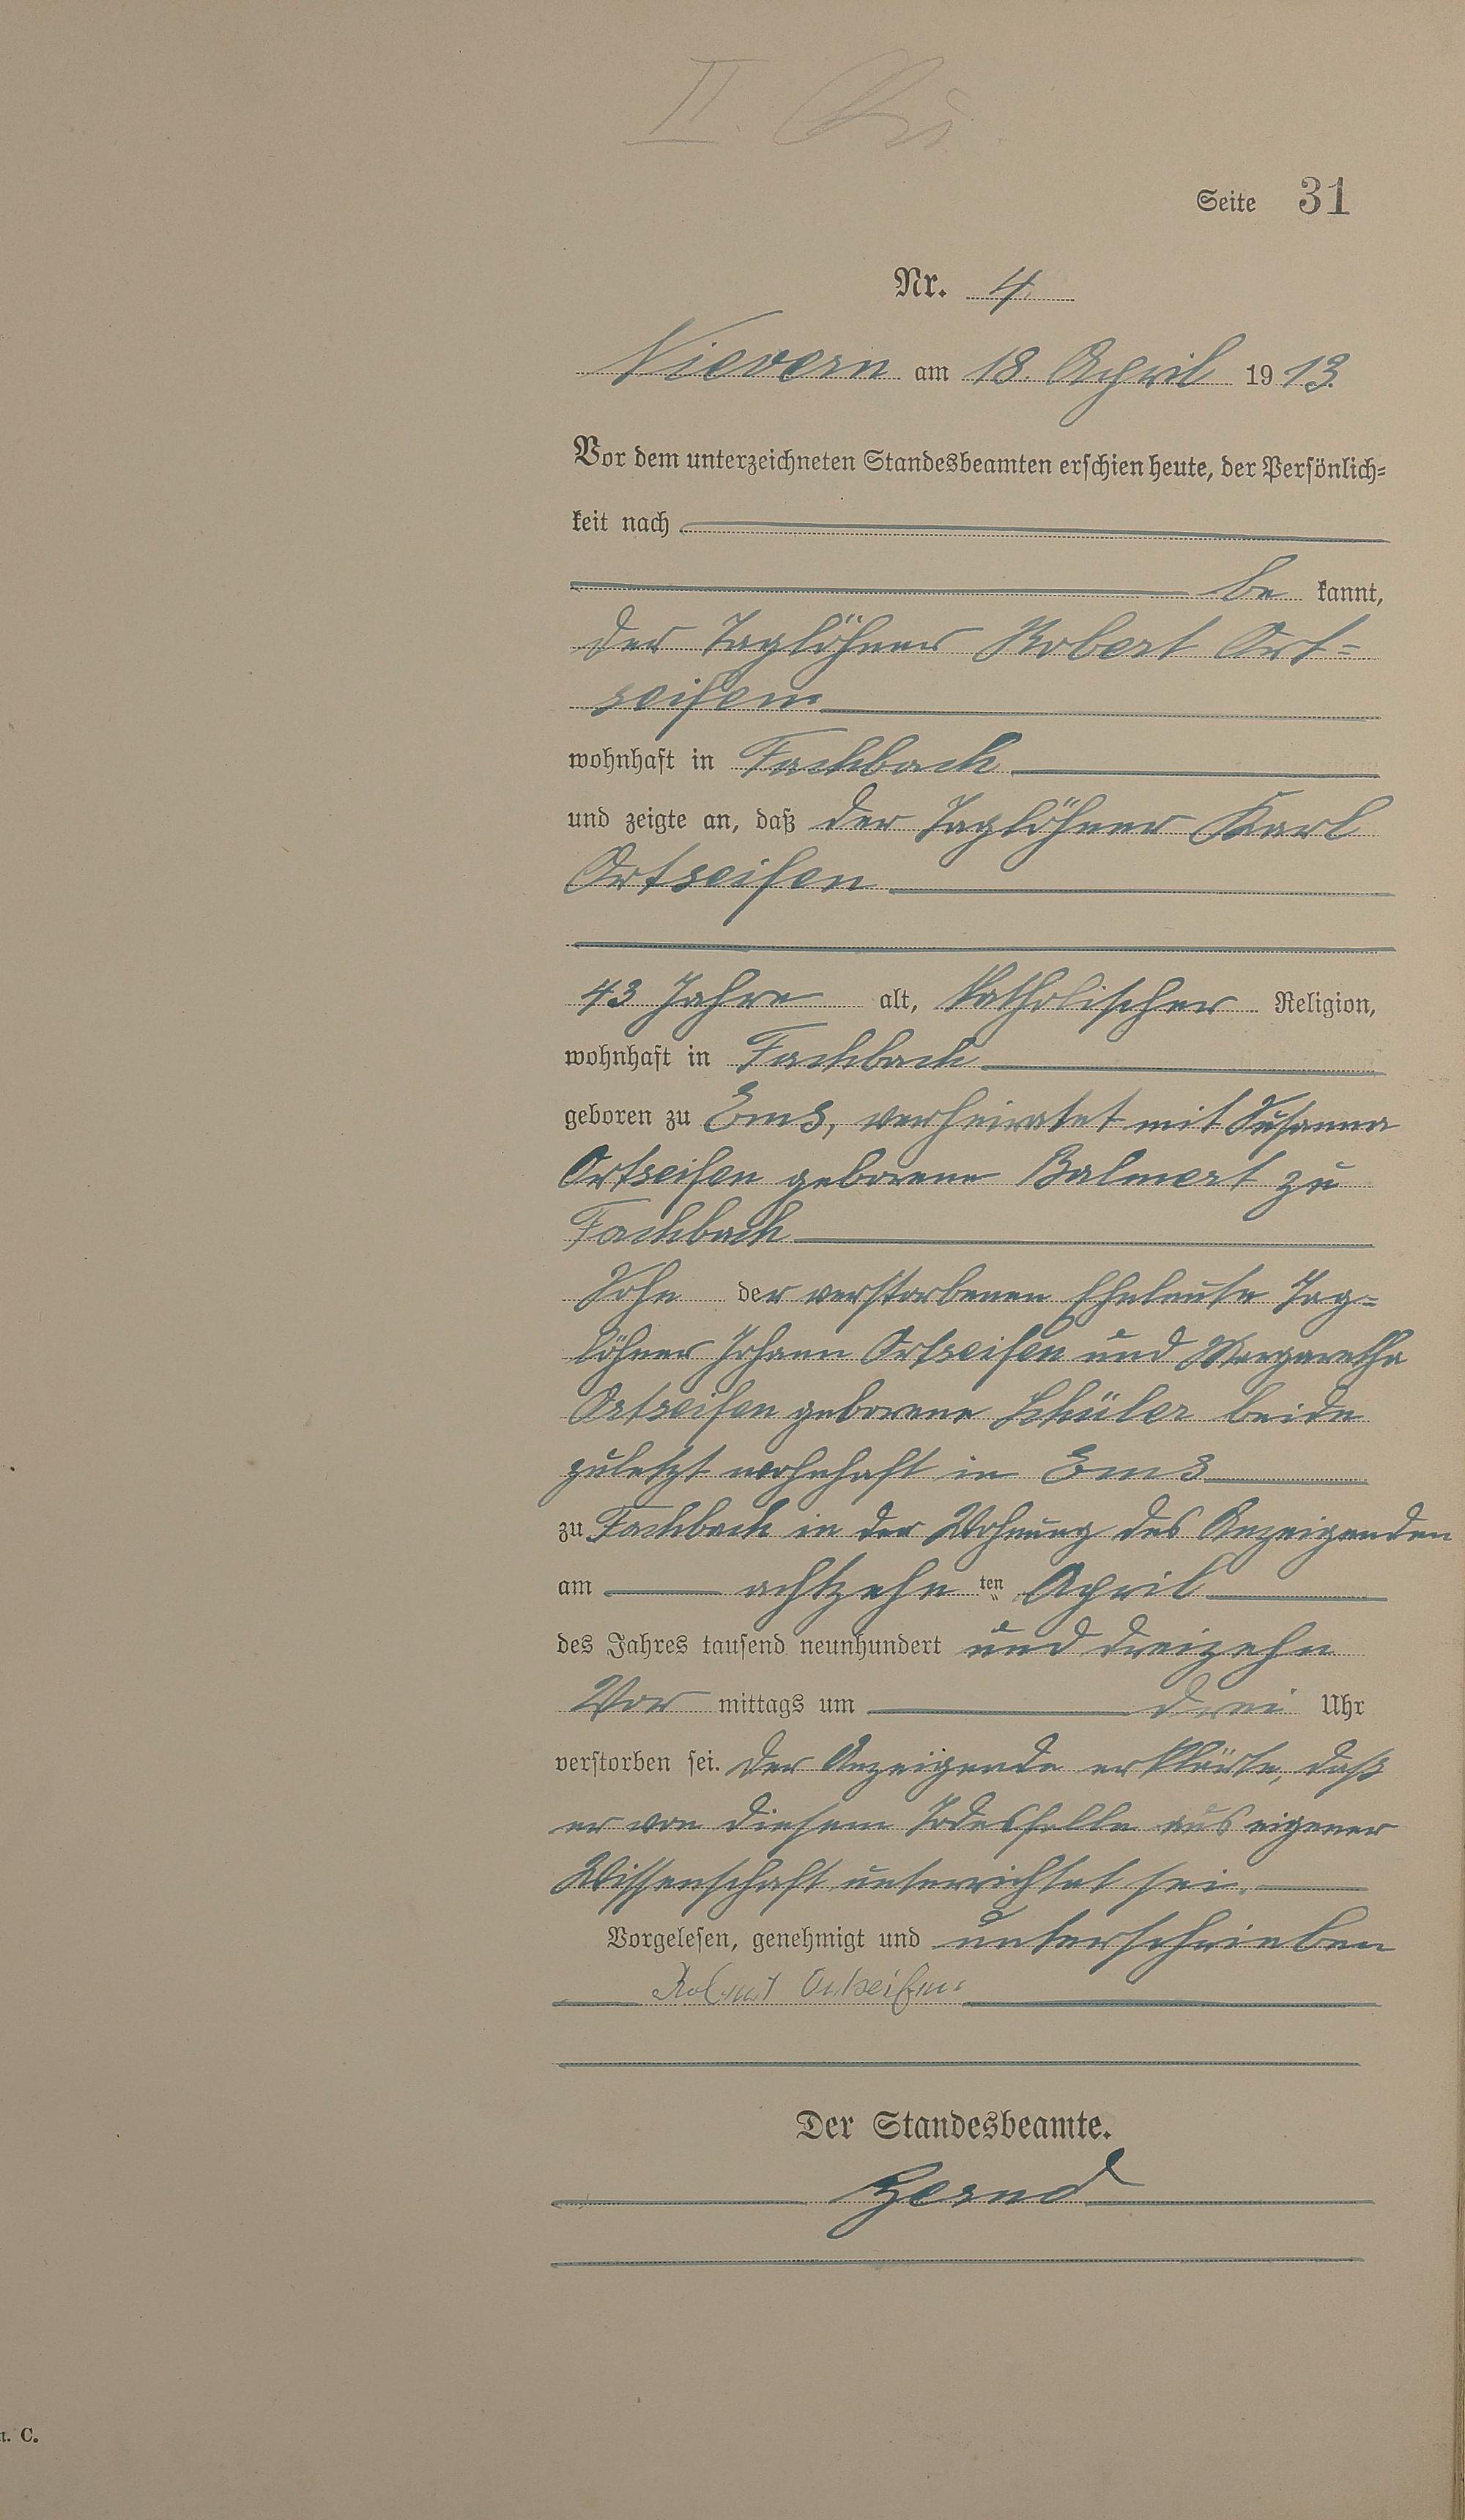 II.
Seite 31
Nr. 4
Nievern am 18. April 1913.
Vor dem unterzeichneten Standesbeamten erschien heute, der Persönlich=
keit nach
be kannt,
der Taglöhner Robert Ort=
seifen
wohnhaft in Fachbach
und zeigte an, daß der Taglöhner Karl
Ortseifen
43 Jahre alt, katholischer Religion,
wohnhaft in Fachbach
geboren zu Ems, verheiratet mit Susanna
Ortseifen geborene Balmert zu
Fachbach
Sohn der verstorbenen Eheleute Tag=
löhner Johann Ortseifen und Margaretha
Ortseifen geborene Schüler beide
zuletzt wohnhaft in Ems
zu Fachbach in der Wohnung des Anzeigenden
am achtzehn ten April
des Jahres tausend neunhundert und dreizehn
Vor mittags um drei Uhr
verstorben sei. Der Anzeigende erklärte, daß
er von diesem Todesfalle aus eigener
Wissenschaft unterrichtet sei.
Vorgelesen, genehmigt und unterschrieben
Robert Ortseifen
Der Standesbeamte.
C.